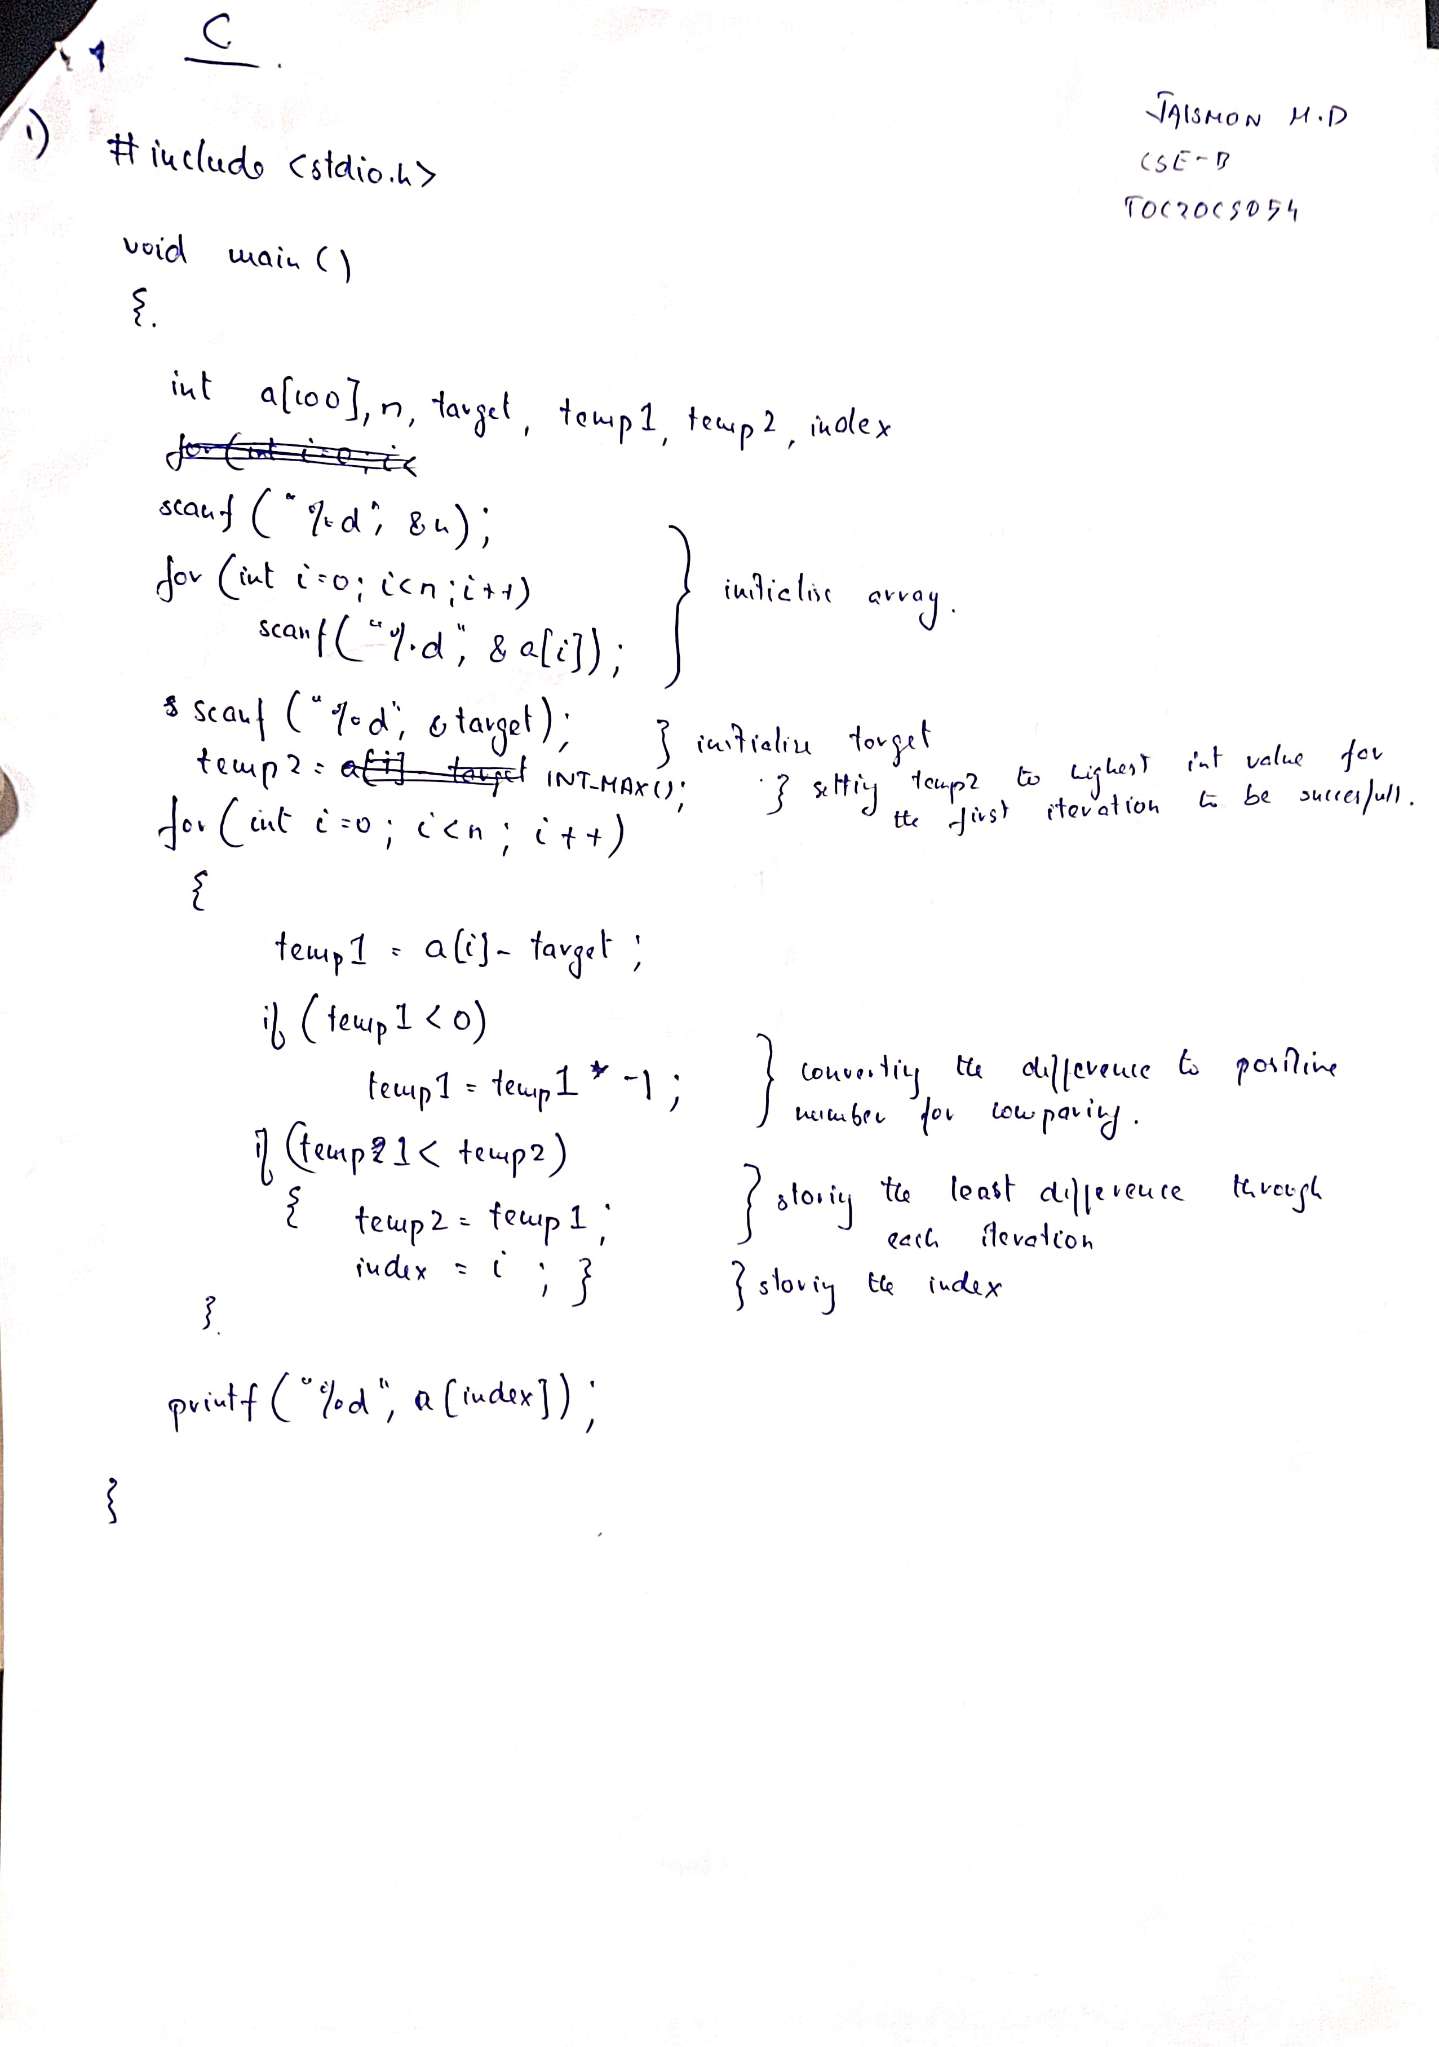 C
JAISMON M.D
CSE-B
TOC20CS054
1) #include <stdio.h>
void main()
{
int a[100], n, target, temp1, temp2, index
for (int i=0; i<
scanf ("%d", &n);
for (int i=0; i<n; i++)
scanf("%d", &a[i]);
} initialise array.
scanf ("%d", &target); } initialize target
temp2 = a[i] - target INT_MAX(); } settig temp2 to highest int value for
the first iteration to be succesfull.
for (int i=0; i<n; i++)
{
temp1 = a[i] - target;
if (temp1<0)
temp1 = temp1 * -1;
} convertig the difference to positive
number for comparing.
if (temp1 < temp2)
{ temp2 = temp1;
} storig the least difference through
each iteration
index = i; } } storig the index
}
printf ("%d", a[index]);
}